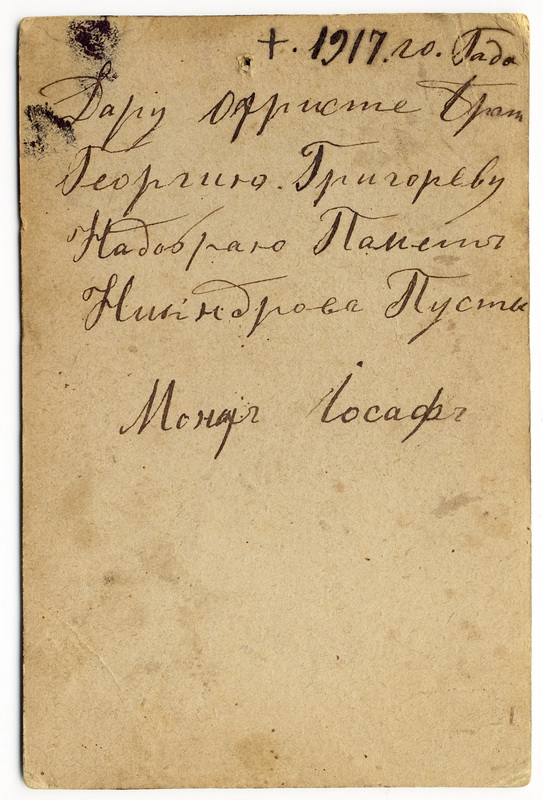 +. 1917. го. Гада
Дару офристе Брат
Георгию. Григореву
Надобраю Паметь
Никандрова Пусты
Монахъ Іосафъ